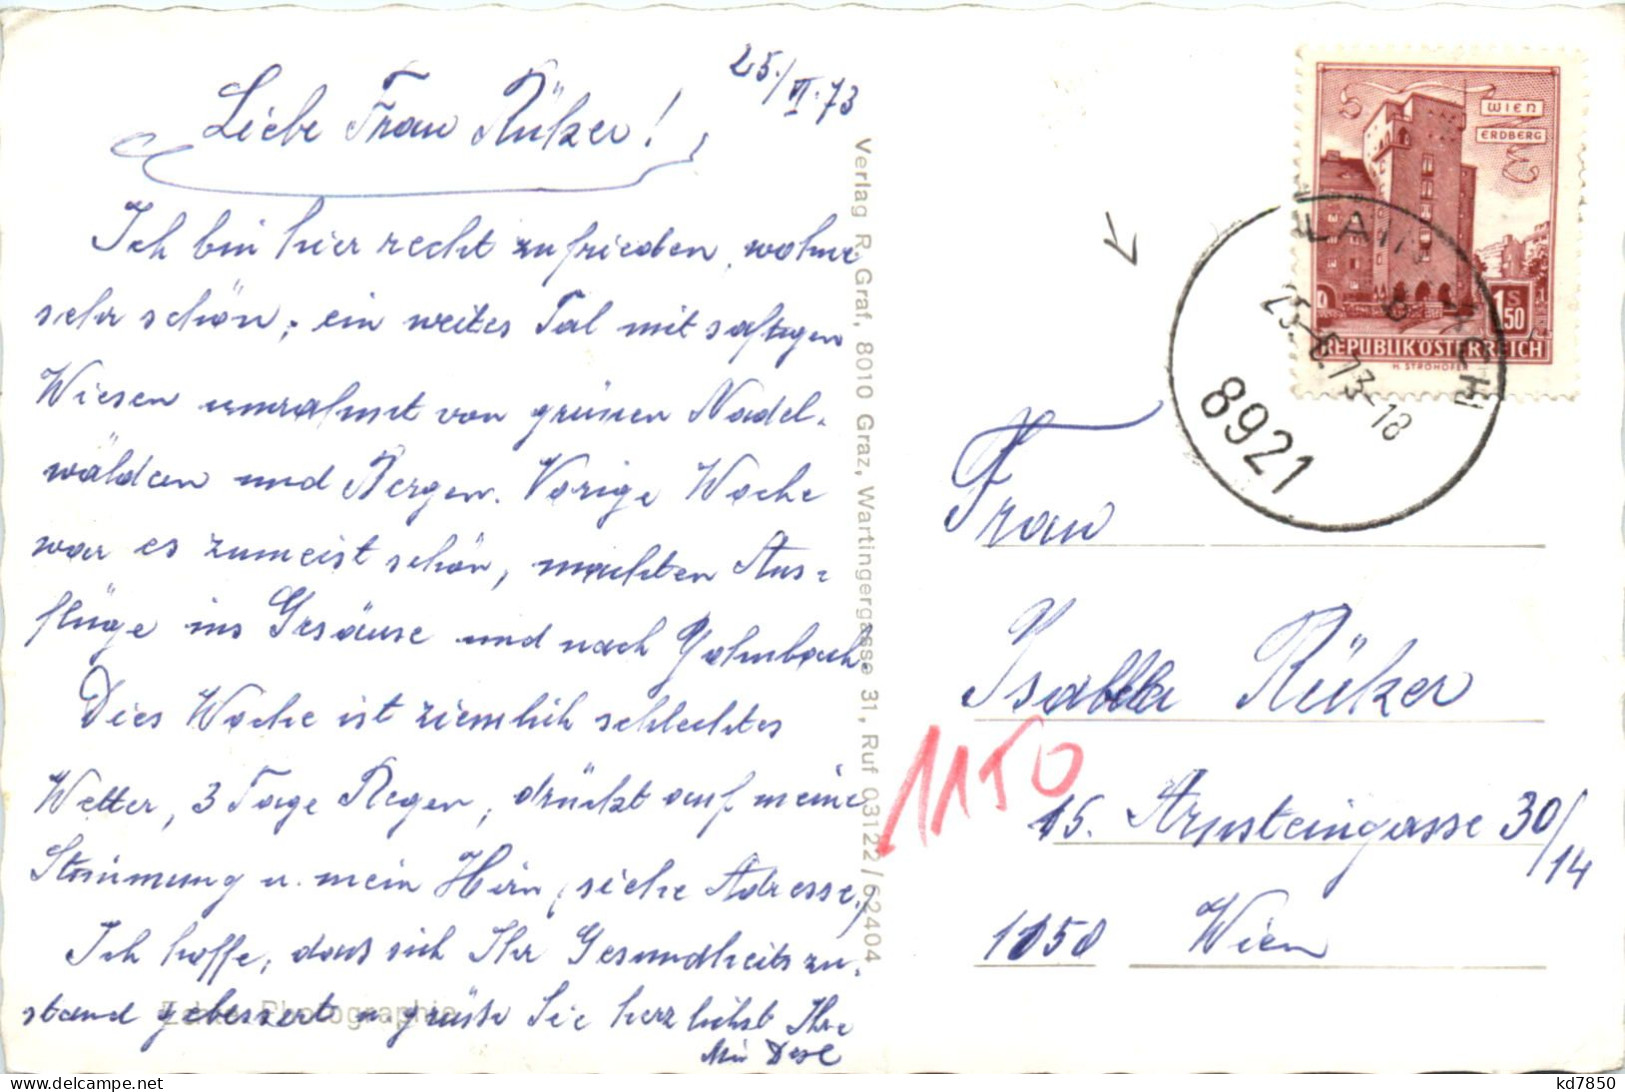 25./VI.73
Liebe Frau Rülker!
Ich bin hier recht zufrieden, wohne
sehr schön; ein weites Tal mit saftigen
Wiesen umrahmt von grünen Nadel-
wäldern und Bergen. Vorige Woche
war es zumeist schön, machten Aus-
flüge ins Gesäuse und nach
Dies Woche ist ziemlich schlechtes
Wetter, 3 Tage Regen, drückt auf meine
Stimmung u. mein Hirn (siehe Adresse)
Ich hoffe, dass sich Ihr Gesundheitszu-
stand gebessert u. grüße Sie herzlichst Ihre
Echte Photographie
Verlag R. Graf, 8010 Graz, Wartingergasse 31, Ruf 03122/62404
WIEN
ERDBERG
1 S
50
REPUBLIK ÖSTERREICH
H. STROHOFER
25.-6.73-18
8921
Frau
Isabella Rülker
1150
15. Arnsteingasse 30/
14
1150 Wien
kd7850